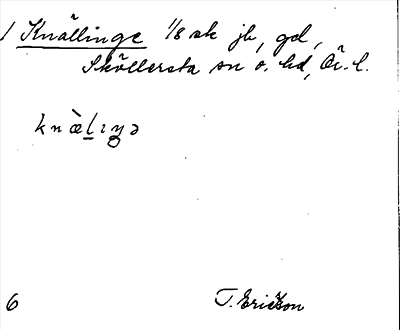 1 Knällinge 1/8 sk jb, gd,
Sköllersta sn o. hd, Ör. l.
knæ̀l̠ıŋə
6 T. Ericson